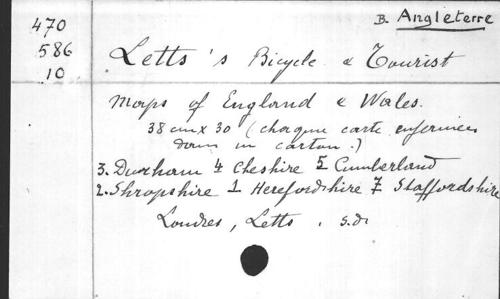 470
586
10
B. Angleterre
Letts's Bicycle & Tourist
Maps of England & Wales.
38 cm x 30 (chaque carte enfermée
dans un carton.)
3. Durham 4 Cheshire 5 Cumberland
2. Shropshire 1 Herefordshire 7 Staffordshire
Londres, Letts . s.d.